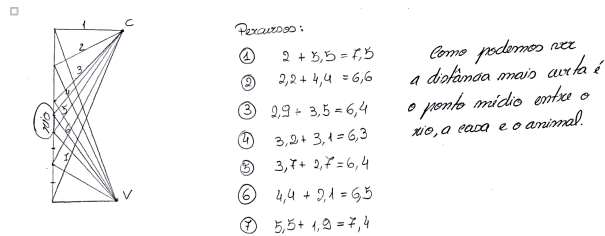 1
C
2
3
4
5
6
rio
1
V
Percursos:
① 2 + 5,5 = 7,5
② 2,2 + 4,4 = 6,6
③ 2,9 + 3,5 = 6,4
④ 3,2 + 3,1 = 6,3
⑤ 3,7 + 2,7 = 6,4
⑥ 4,4 + 2,1 = 6,5
⑦ 5,5 + 1,9 = 7,4
Como podemos ver
a distânsa mais curta é
o ponto médio entre o
rio, a casa e o animal.